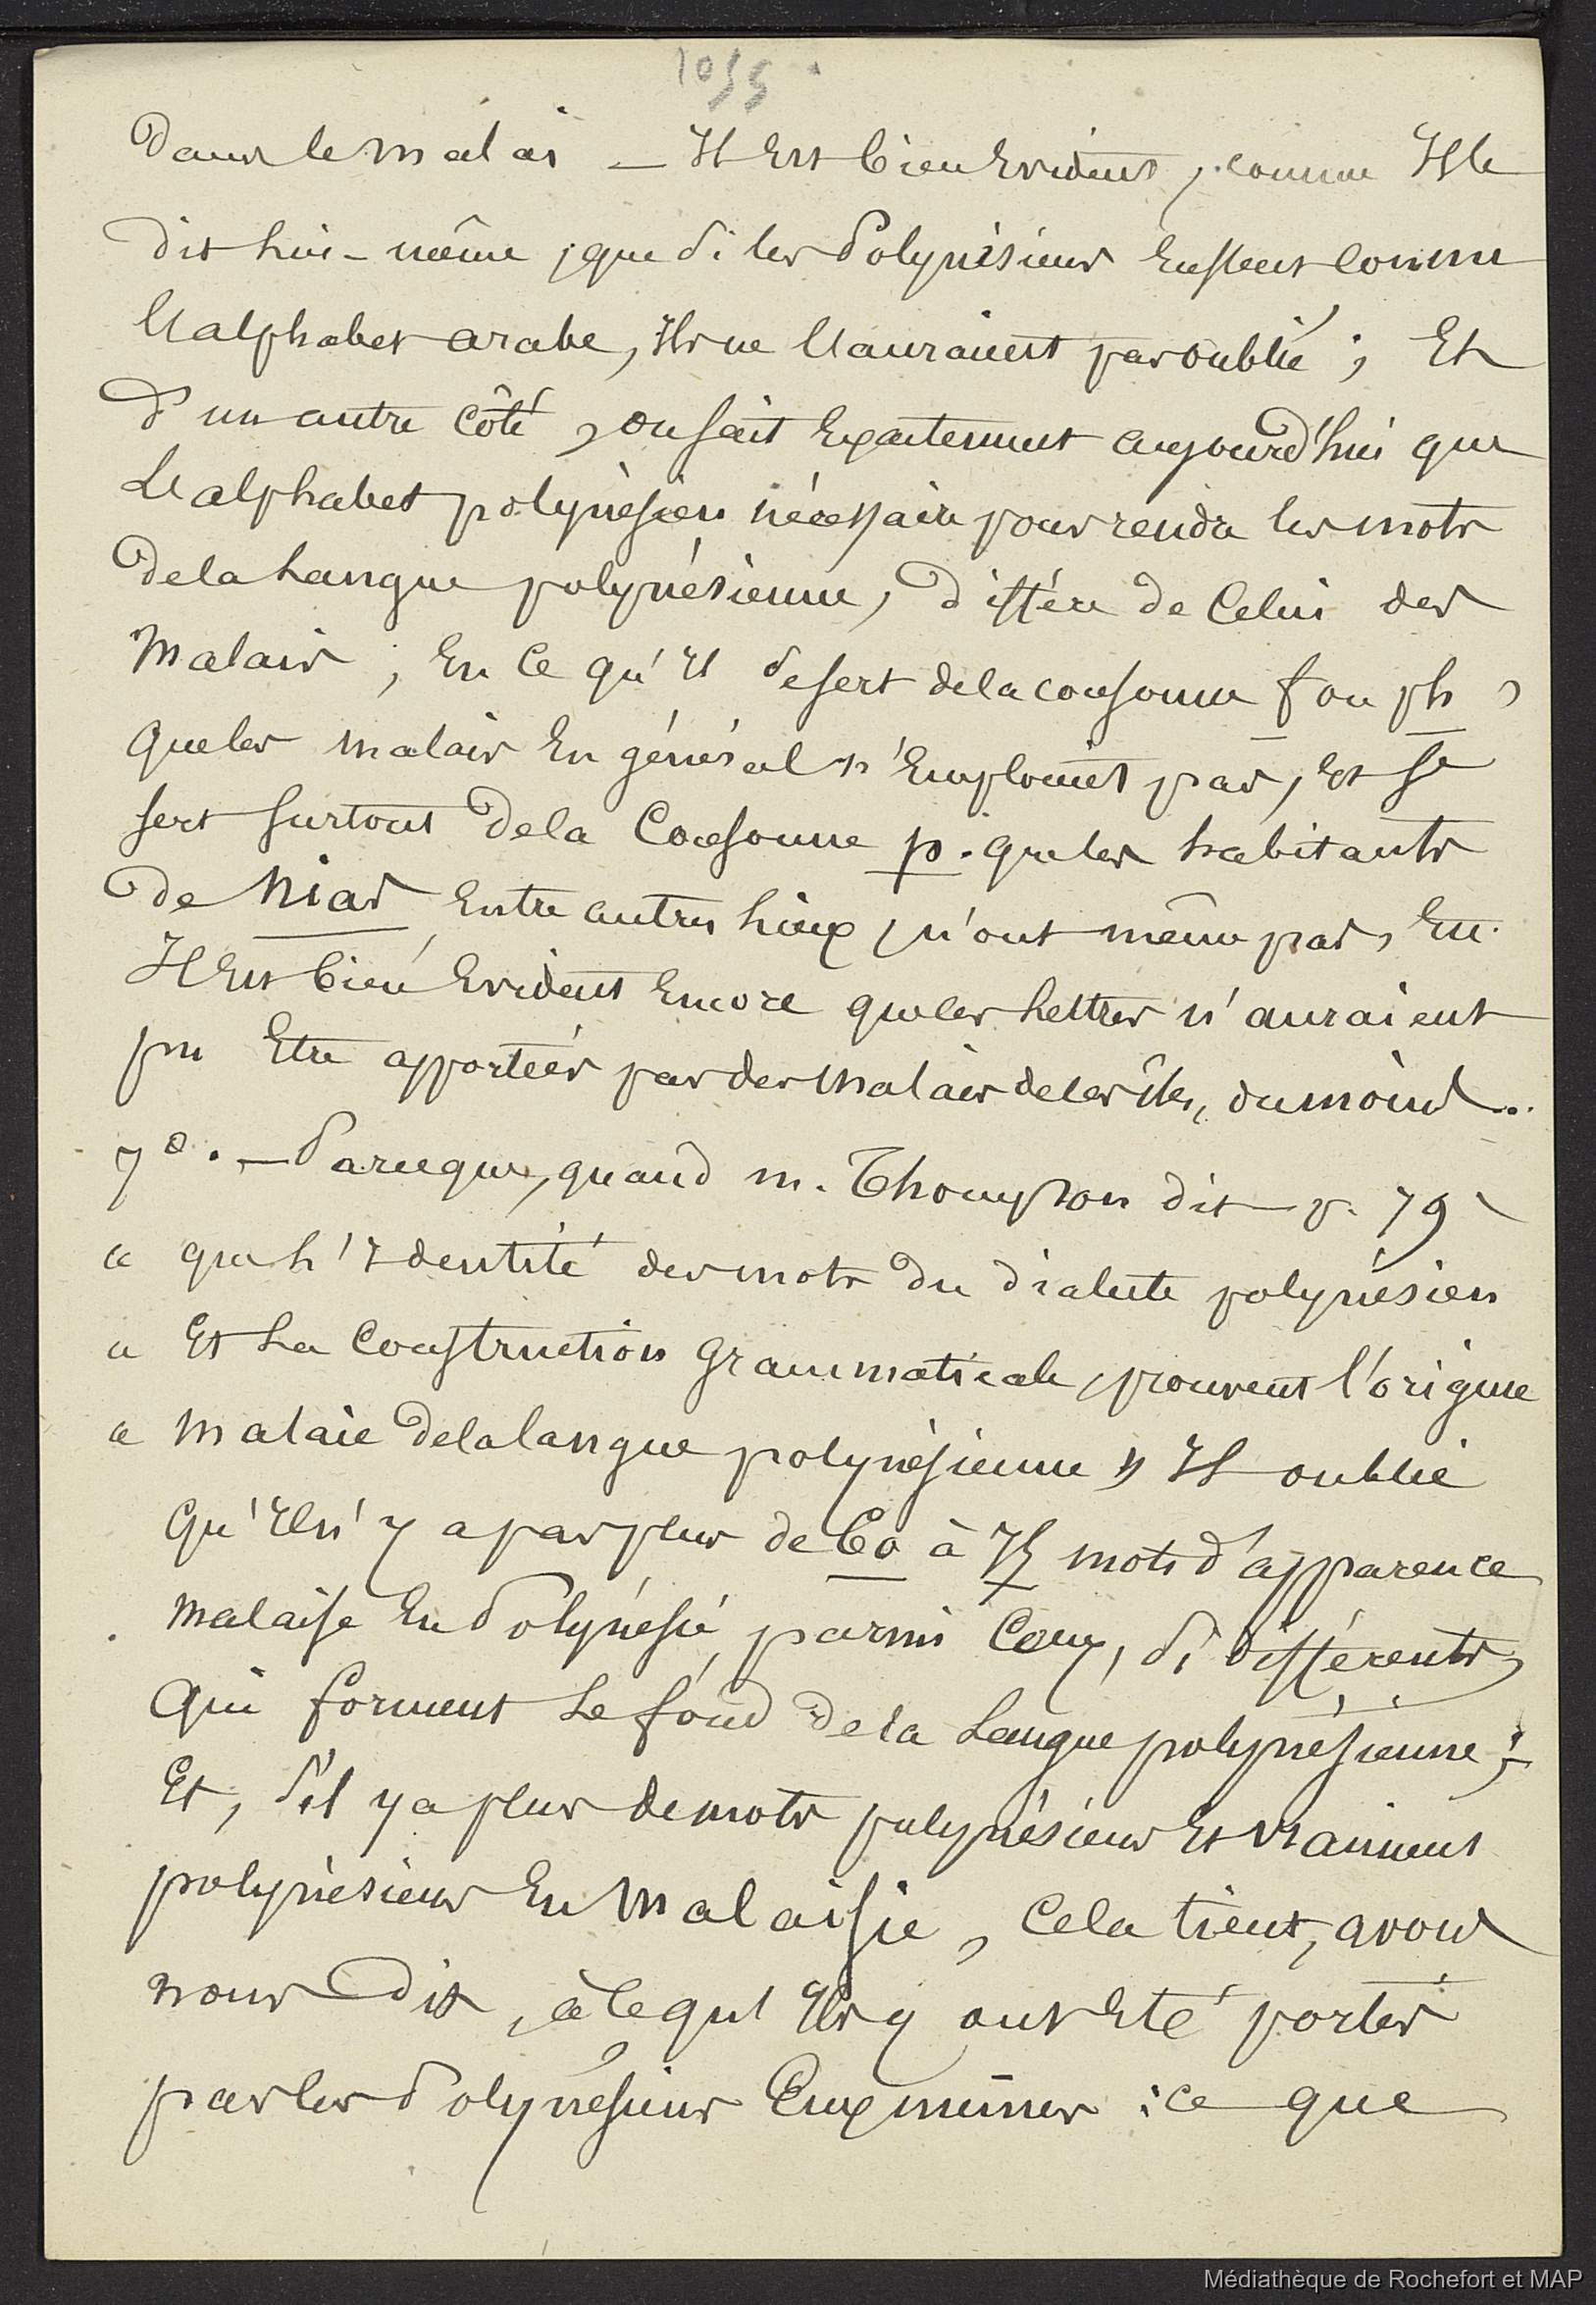 1055
dans le malai — Il est bien Evident, comme Il le
dit lui-même, que si les Polynésiens Eussent connu
L'alphabet arabe, Ils ne L'auraient pas oublié ; Et
d'un autre côté, on sait Exactement aujourd'hui que
L'alphabet polynésien nécessaire pour rendre les mots
de la Langue polynésienne, diffère de Celui des
Malais, En Ce qu'Il se sert de la consonne f ou ph,
que les malais En général n'Emploient pas, Et se
sert surtout de la Consonne p. que les habitants
de Nias Entre autres Lieux, n'ont même pas, En.
Il Est bien Evident Encore que les Lettres n'auraient
pu Etre apportées par des Malais de ces îles, du moins...
7°. — Parceque, quand M. Thompson dit p. 79
« que L'Identité des mots du dialecte polynésien
« Et La Construction grammaticale, prouvent l'origine
« malaie de la langue polynésienne » Il oublie
qu'Il n'y a pas plus de 60 à 75 mots d'apparence
malaise En Polynésie, parmi Ceux, si différents,
qui forment Le fond de la Langue polynésienne ;
Et, s'il y a plus de mots polynésiens Et vraiment
polynésiens En Malaisie, Cela tient, avons
nous dit, à ce qu'Ils y ont Eté portés
par les Polynésiens Eux mêmes : ce que
Médiathèque de Rochefort et MAP